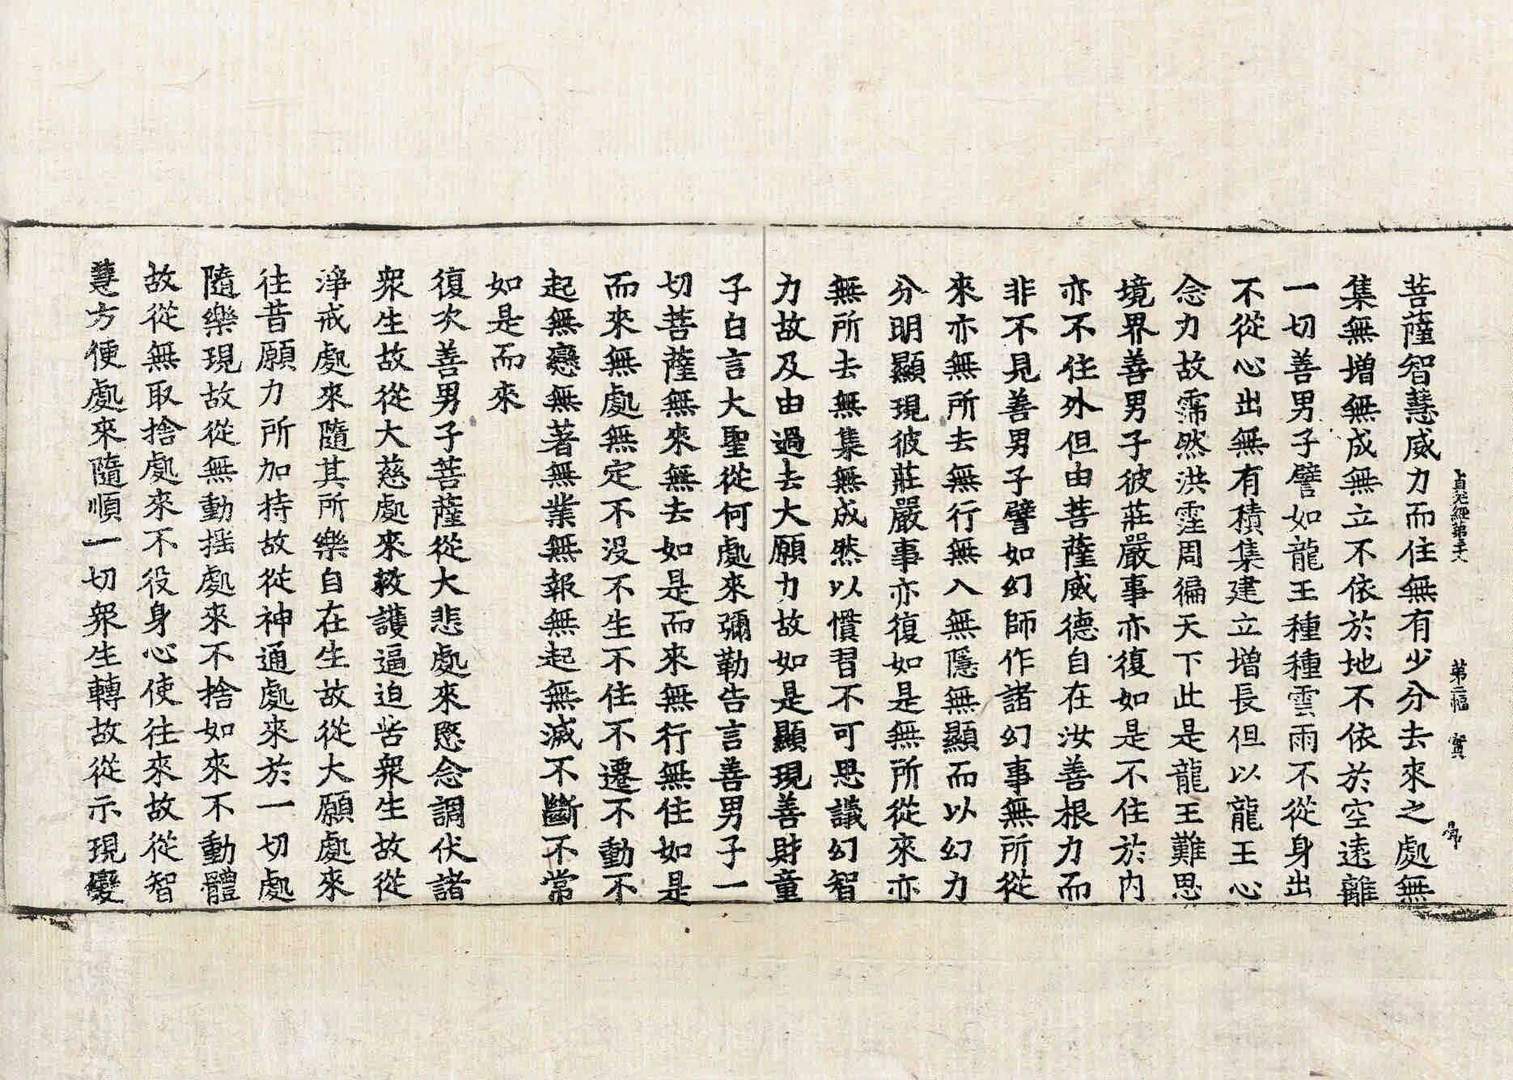 貞元經第三十八 第二幅 賓
菩薩智慧威力而住無有少分去來之處無
集無增無成無立不依於地不依於空遠離
一切善男子譬如龍王種種雲雨不從身出
不從心出無有積集建立增長但以龍王心
念力故霈然洪霔周徧天下此是龍王難思
境界善男子彼莊嚴事亦復如是不住於內
亦不住外但由菩薩威德自在汝善根力而
非不見善男子譬如幻師作諸幻事無所從
來亦無所去無行無入無隱無顯而以幻力
分明顯現彼莊嚴事亦復如是無所從來亦
無所去無集無成然以慣習不可思議幻智
力故及由過去大願力故如是顯現善財童
子白言大聖從何處來彌勒告言善男子一
切菩薩無來無去如是而來無行無住如是
而來無處無定不沒不生不住不遷不動不
起無戀無著無業無報無起無滅不斷不常
如是而來
復次善男子菩薩從大悲處來愍念調伏諸
衆生故從大慈處來救護逼迫苦衆生故從
淨戒處來隨其所樂自在生故從大願處來
往昔願力所加持故從神通處來於一切處
隨樂現故從無動搖處來不捨如來不動體
故從無取捨處來不役身心使往來故從智
慧方便處來隨順一切衆生轉故從示現變